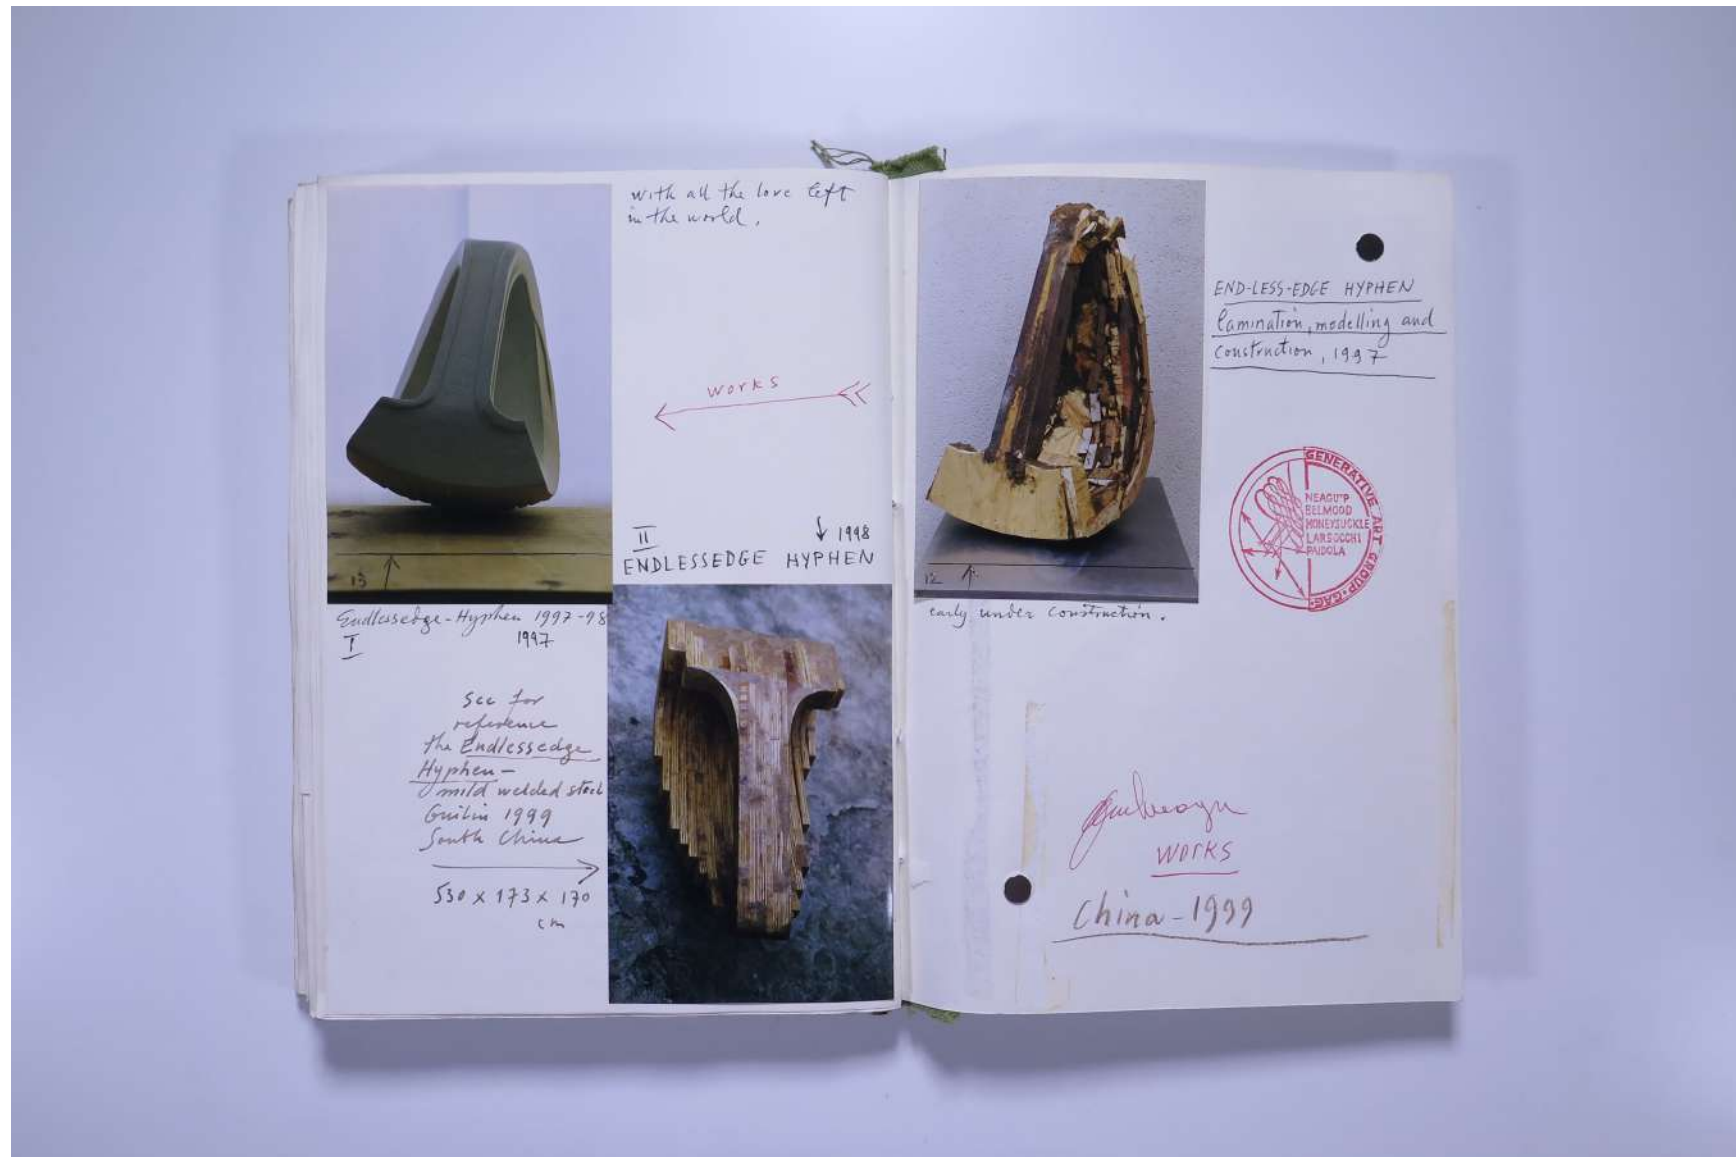 with all the love left
in the world.
works
II
↓ 1998
ENDLESSEDGE HYPHEN
13
Endlessedge-Hyphen 1997-98
I
1997
see for
reference
the Endlessedge
Hyphen—
mild welded steel
Guilin 1999
South China
530 x 173 x 170
cm
12
early under construction.
END-LESS-EDGE HYPHEN
lamination, modelling and
construction, 1997
GENERATIVE ART GROUP·GAG·
NEAGU·P
BELMOOD
HONEYSUCKLE
LARSOCCHI
PAIDOLA
WORKS
China-1999